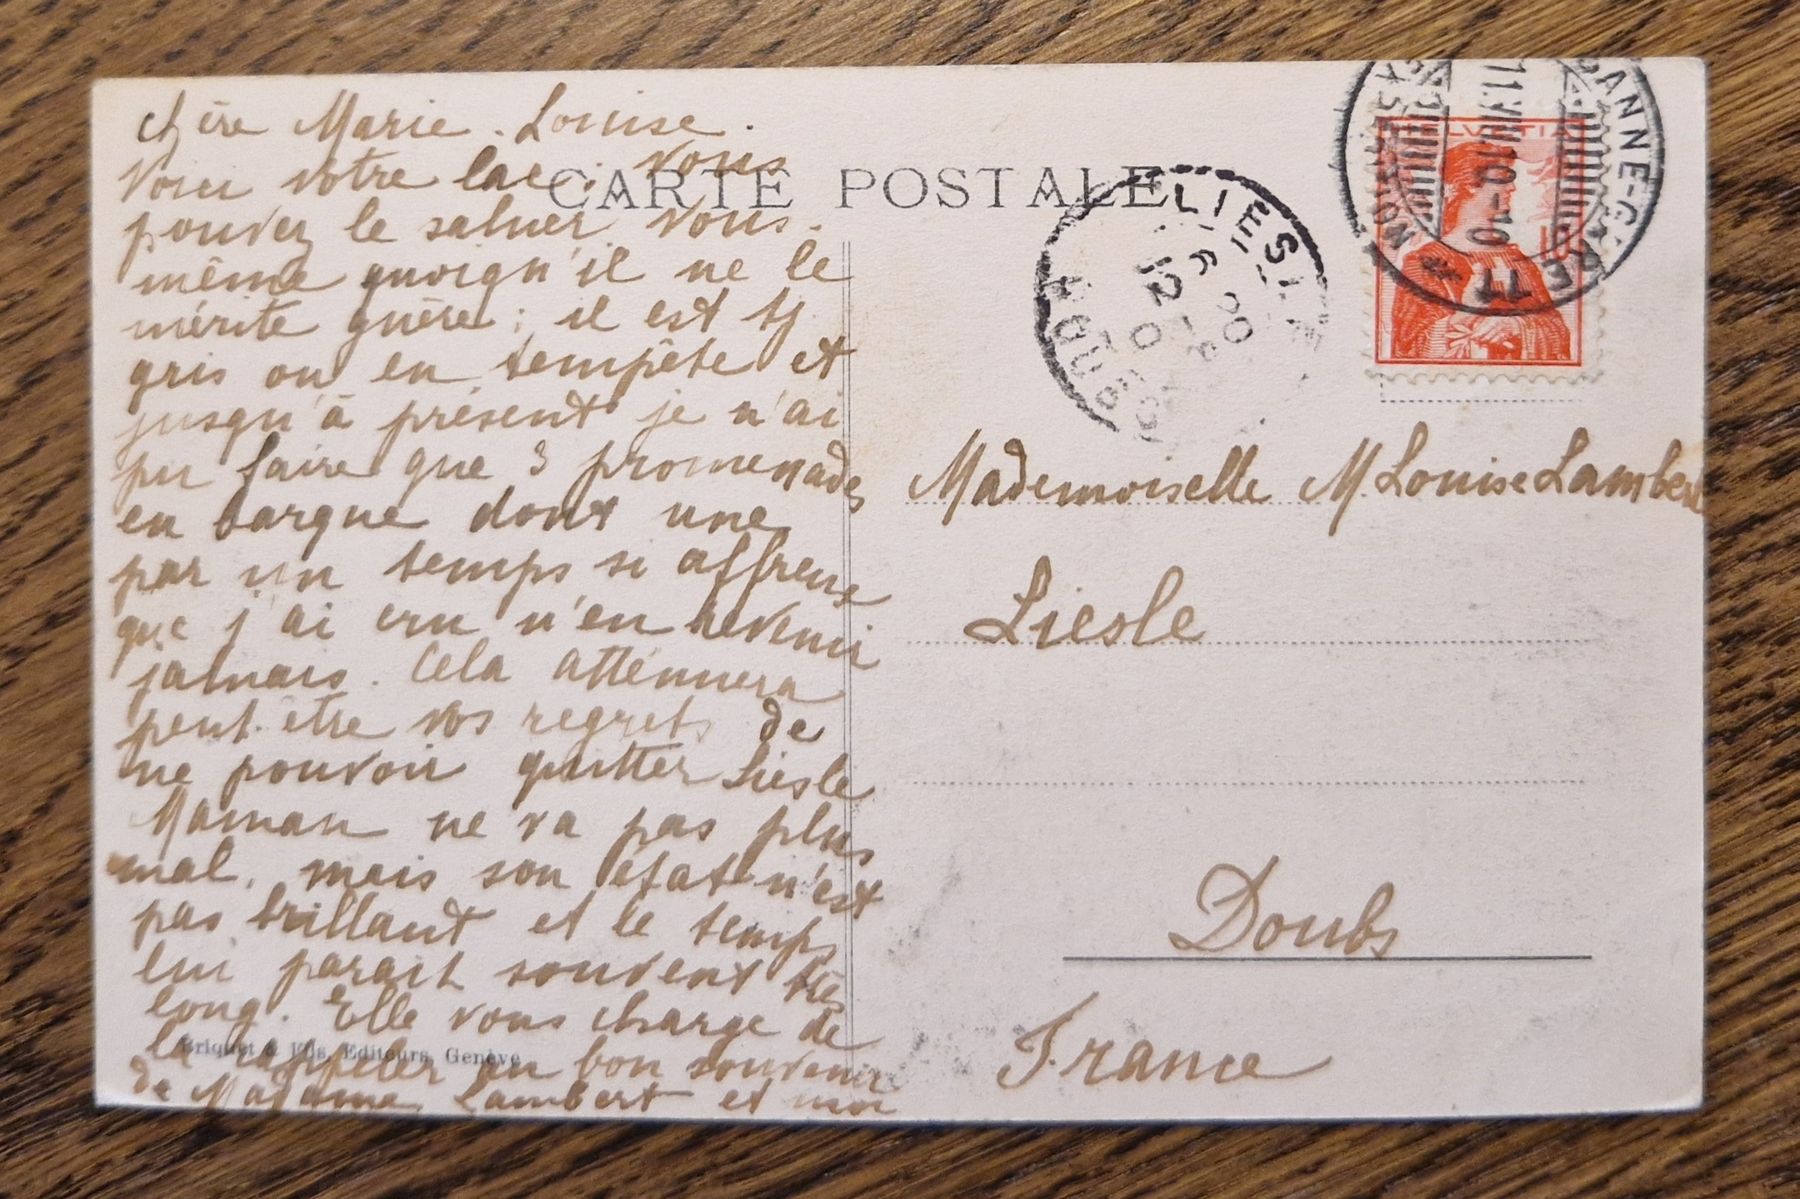 Chère Marie-Louise.
Voici votre lac; vous
pouvez le saluer vous-
même quoiqu'il ne le
mérite guère; il est tj.
gris ou en tempête et
jusqu'à présent je n'ai
pu faire que 3 promenades
en barque dont une
par un temps si affreux
que j'ai cru n'en revenir
jamais. Cela atténuera
peut-être vos regrets de
ne pouvoir quitter Liesle
Maman ne va pas plus
mal, mais son état n'est
pas brillant et le temps
lui parait souvent très
long. Elle vous charge de
la rappeler au bon souvenir
de Madame Lambert et moi
Briquet & Fils, Editeurs, Genève
CARTE POSTALE
LIESLE
DOUBS
HELVETIA
11.VII.10-10
Mademoiselle M. Louise Lambert
Liesle
Doubs
France